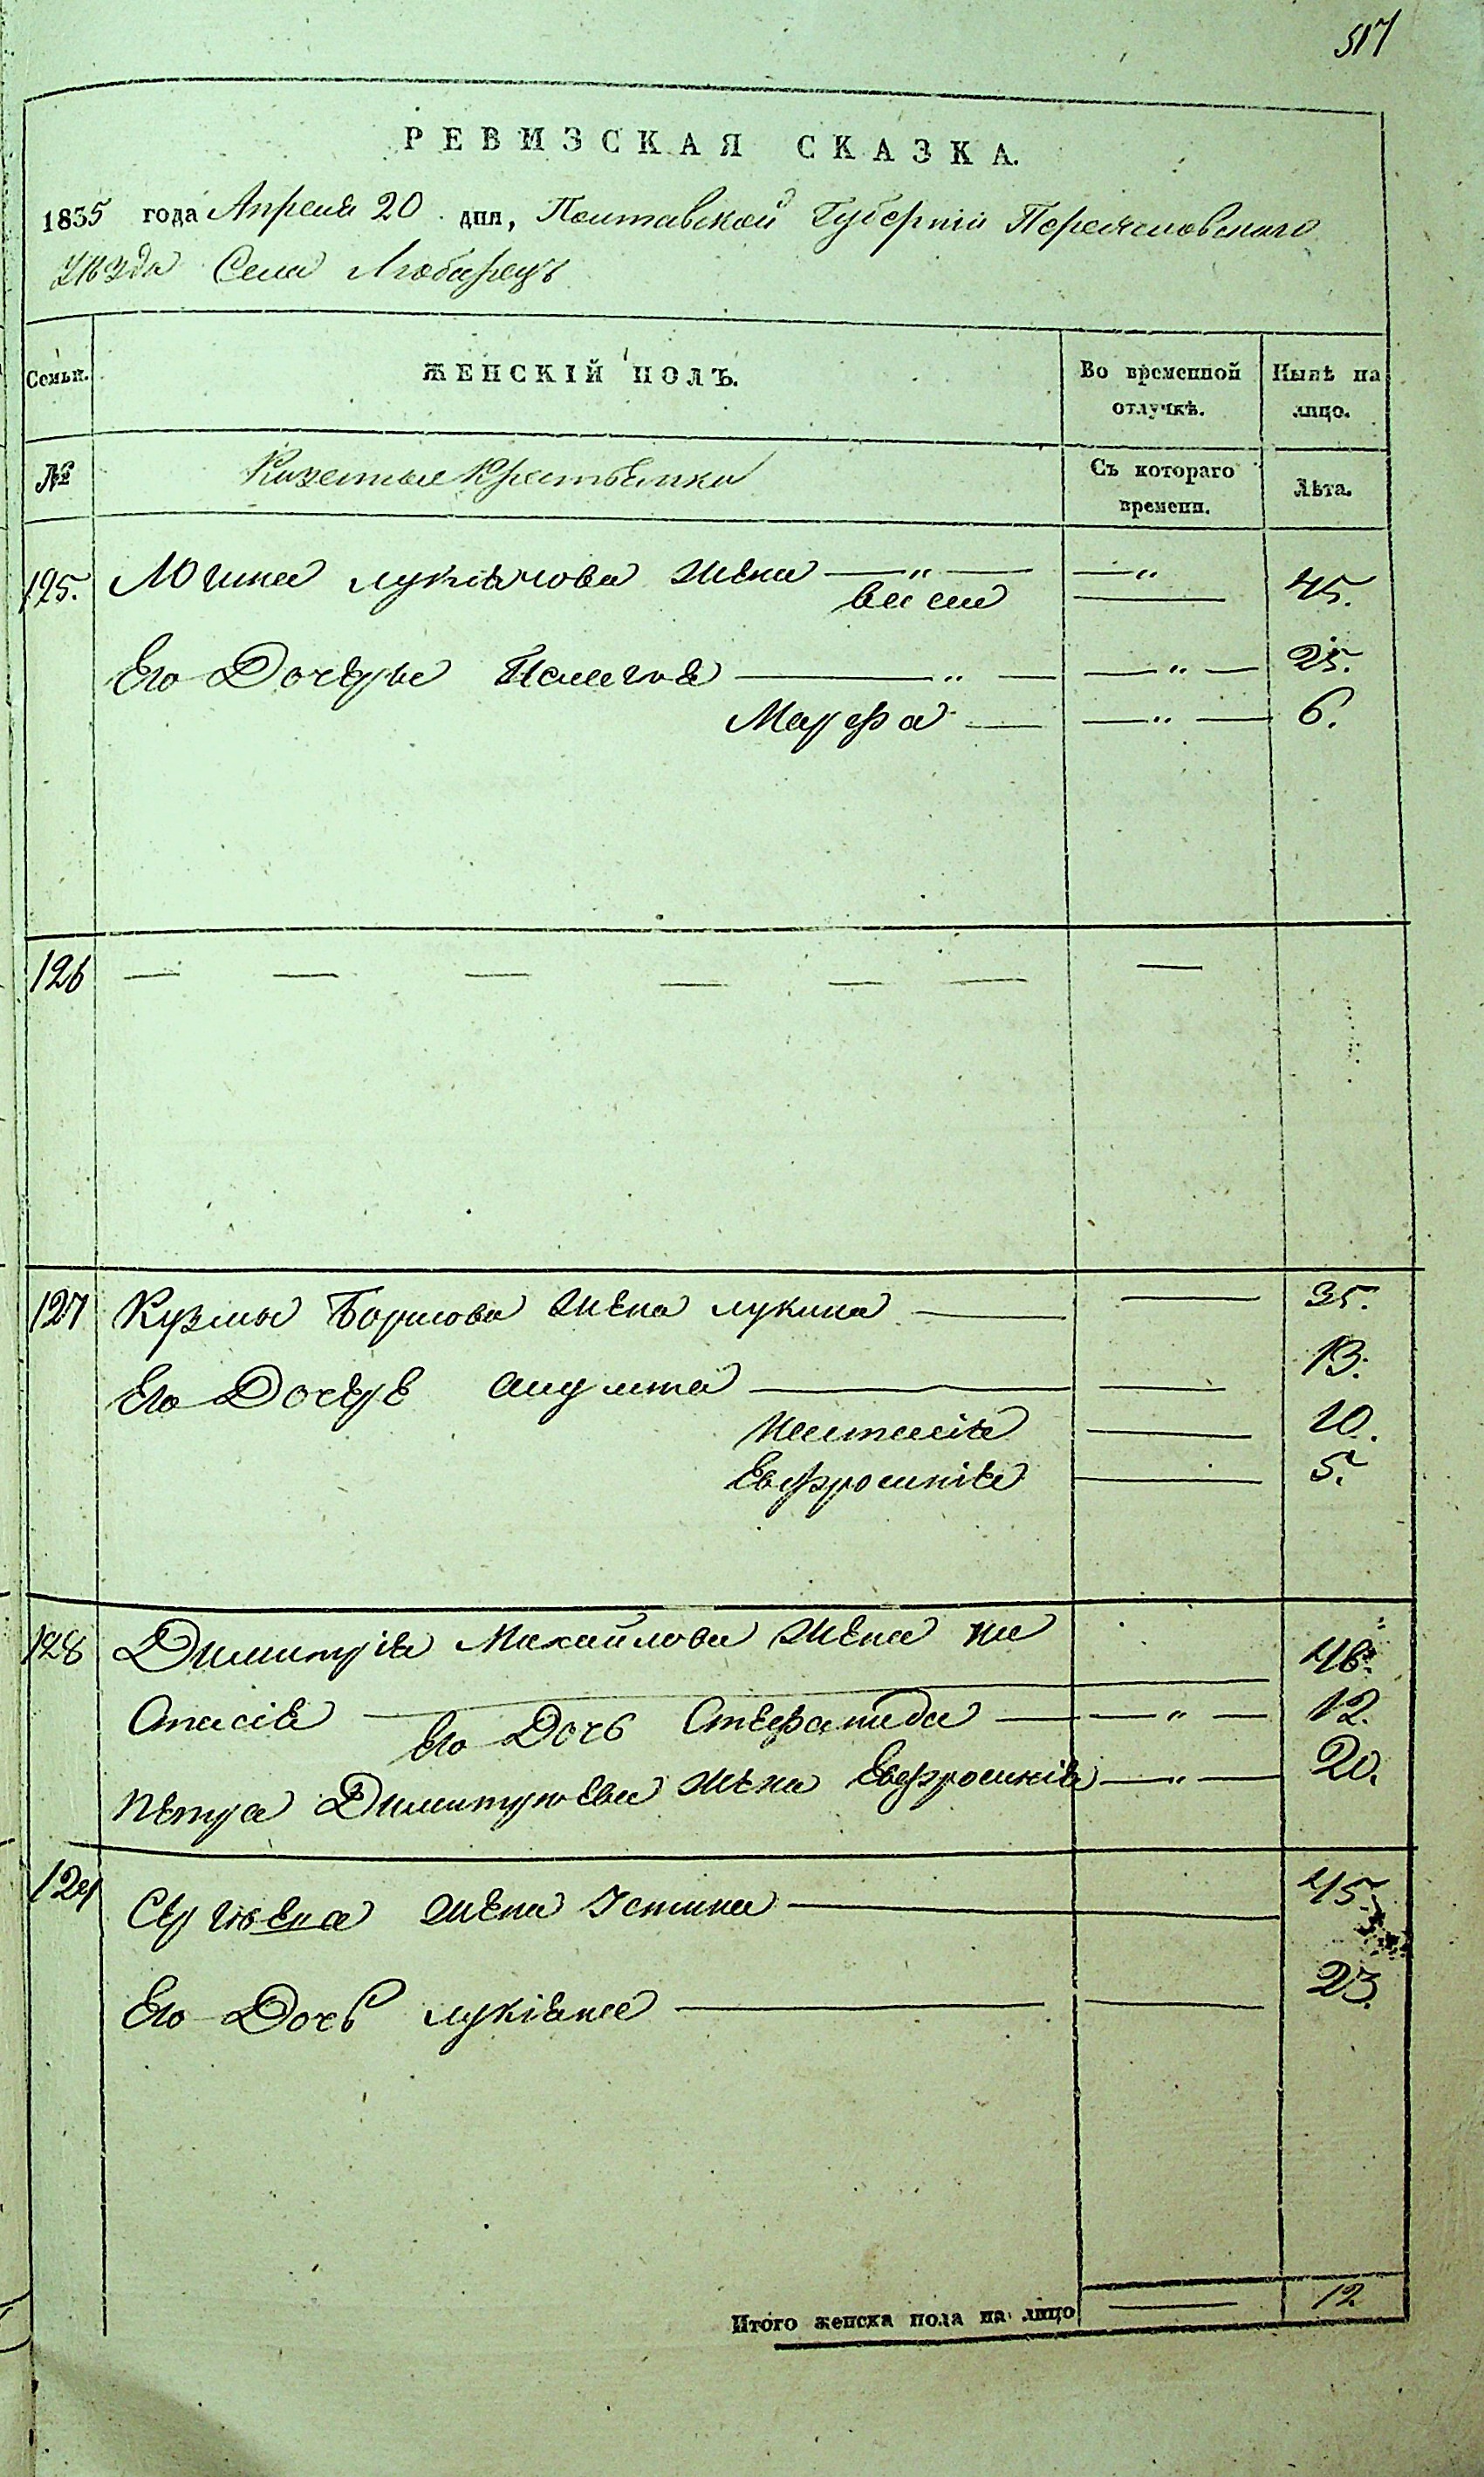 517
РЕВИЗСКАЯ СКАЗКА.
1835 года Апреля 20 дня, Полтавской Губернии Переясловского
Уѣзда Села Любарецъ
Семьи. ЖЕНСКІЙ ПОЛЪ. Во временной отлучкѣ. Нынѣ на лицо.
№ Казенные Крестьянки Съ котораго времени. Лѣта.
125. лукьянова жена — " — — " 45.
Его Дочеры Пелагия — " — — " — 25.
Марфа — — " — 6.
126 — — — — — — —
127 Кузмы Борисова жена лукина — — 35.
Его Дочере — — 13.
настасия — 10.
Евфросиния — 5.
128 Димитрия Михайлова жена на
стасия — 46.
Его Дочь Стефанида — — " — 12.
петра Димитриева жена Евфросиния — " — 20.
129 жена Устина — 45.
Его Дочь лукияна — — 23.
Итого женска пола на лицо — 12